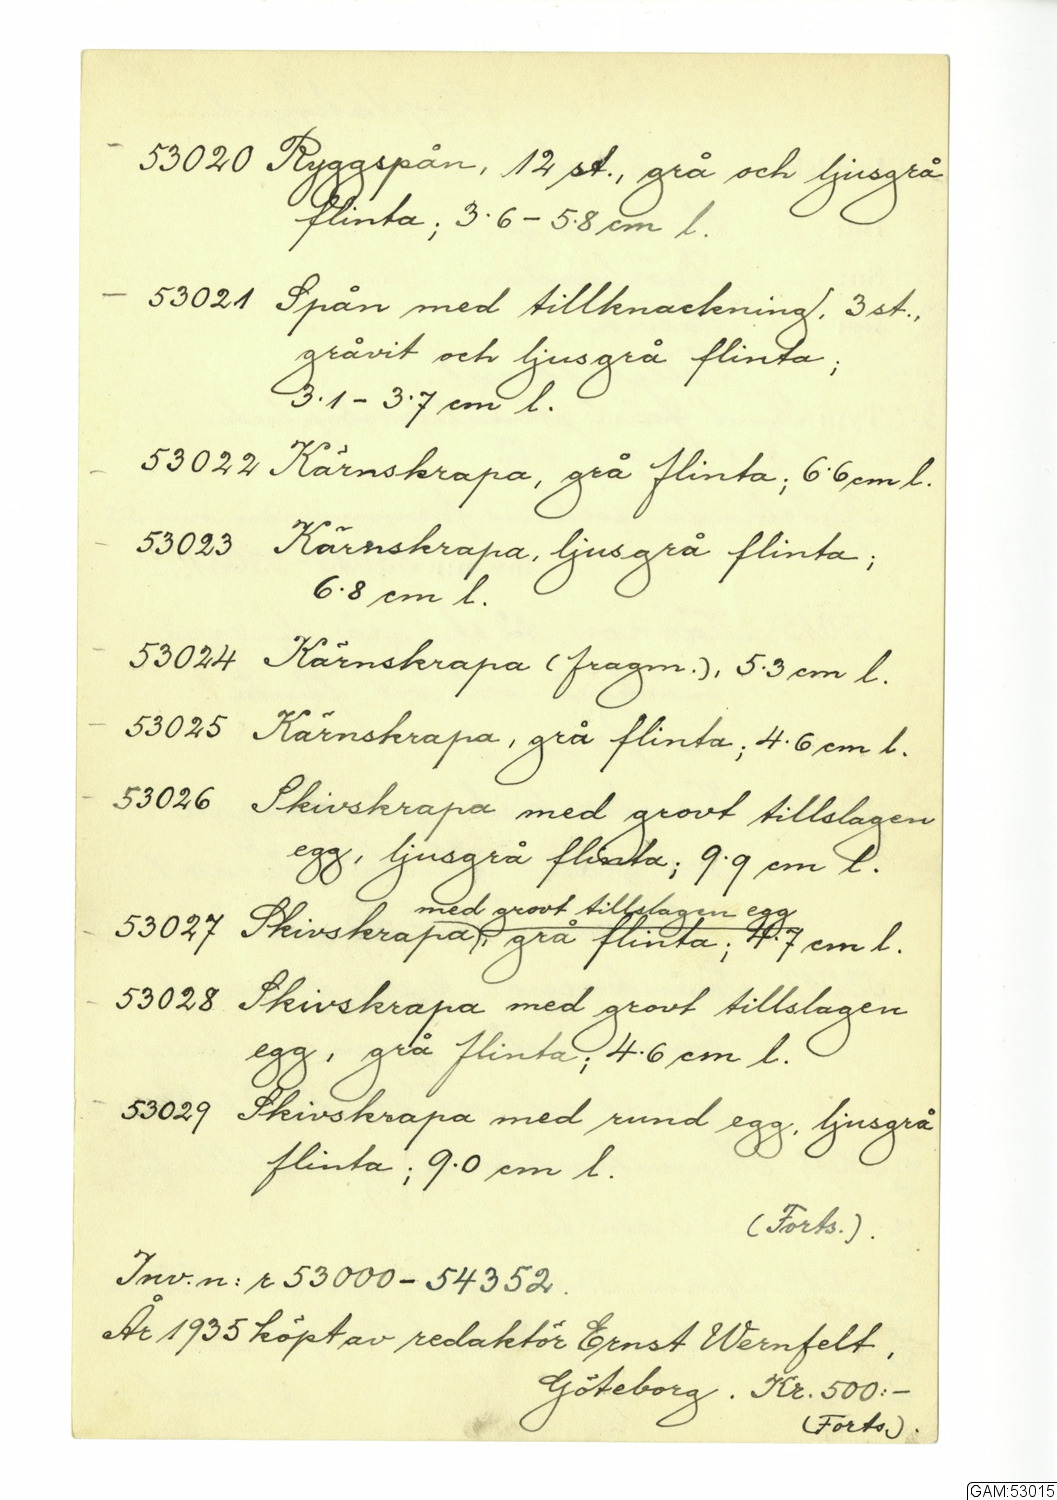 - 53020 Ryggspån, 12 st., grå och ljusgrå
flinta; 3.6 - 5.8 cm l.
- 53021 Spån med tillknackning, 3 st.,
gråvit och ljusgrå flinta;
3.1 - 3.7 cm l.
- 53022 Kärnskrapa, grå flinta; 6.6 cm l.
- 53023 Kärnskrapa, ljusgrå flinta;
6.8 cm l.
- 53024 Kärnskrapa (fragm.), 5.3 cm l.
- 53025 Kärnskrapa, grå flinta; 4.6 cm l.
- 53026 Skivskrapa med grovt tillslagen
egg, ljusgrå flinta; 9.9 cm l.
med grovt tillslagen egg
- 53027 Skivskrapa, grå flinta; 4.7 cm l.
- 53028 Skivskrapa med grovt tillslagen
egg, grå flinta; 4.6 cm l.
- 53029 Skivskrapa med rund egg, ljusgrå
flinta; 9.0 cm l.
(Forts.).
Inv. n:r 53000 - 54352.
År 1935 köpt av redaktör Ernst Wernfelt,
Göteborg. Kr. 500:-
(Forts.).
GAM:53015